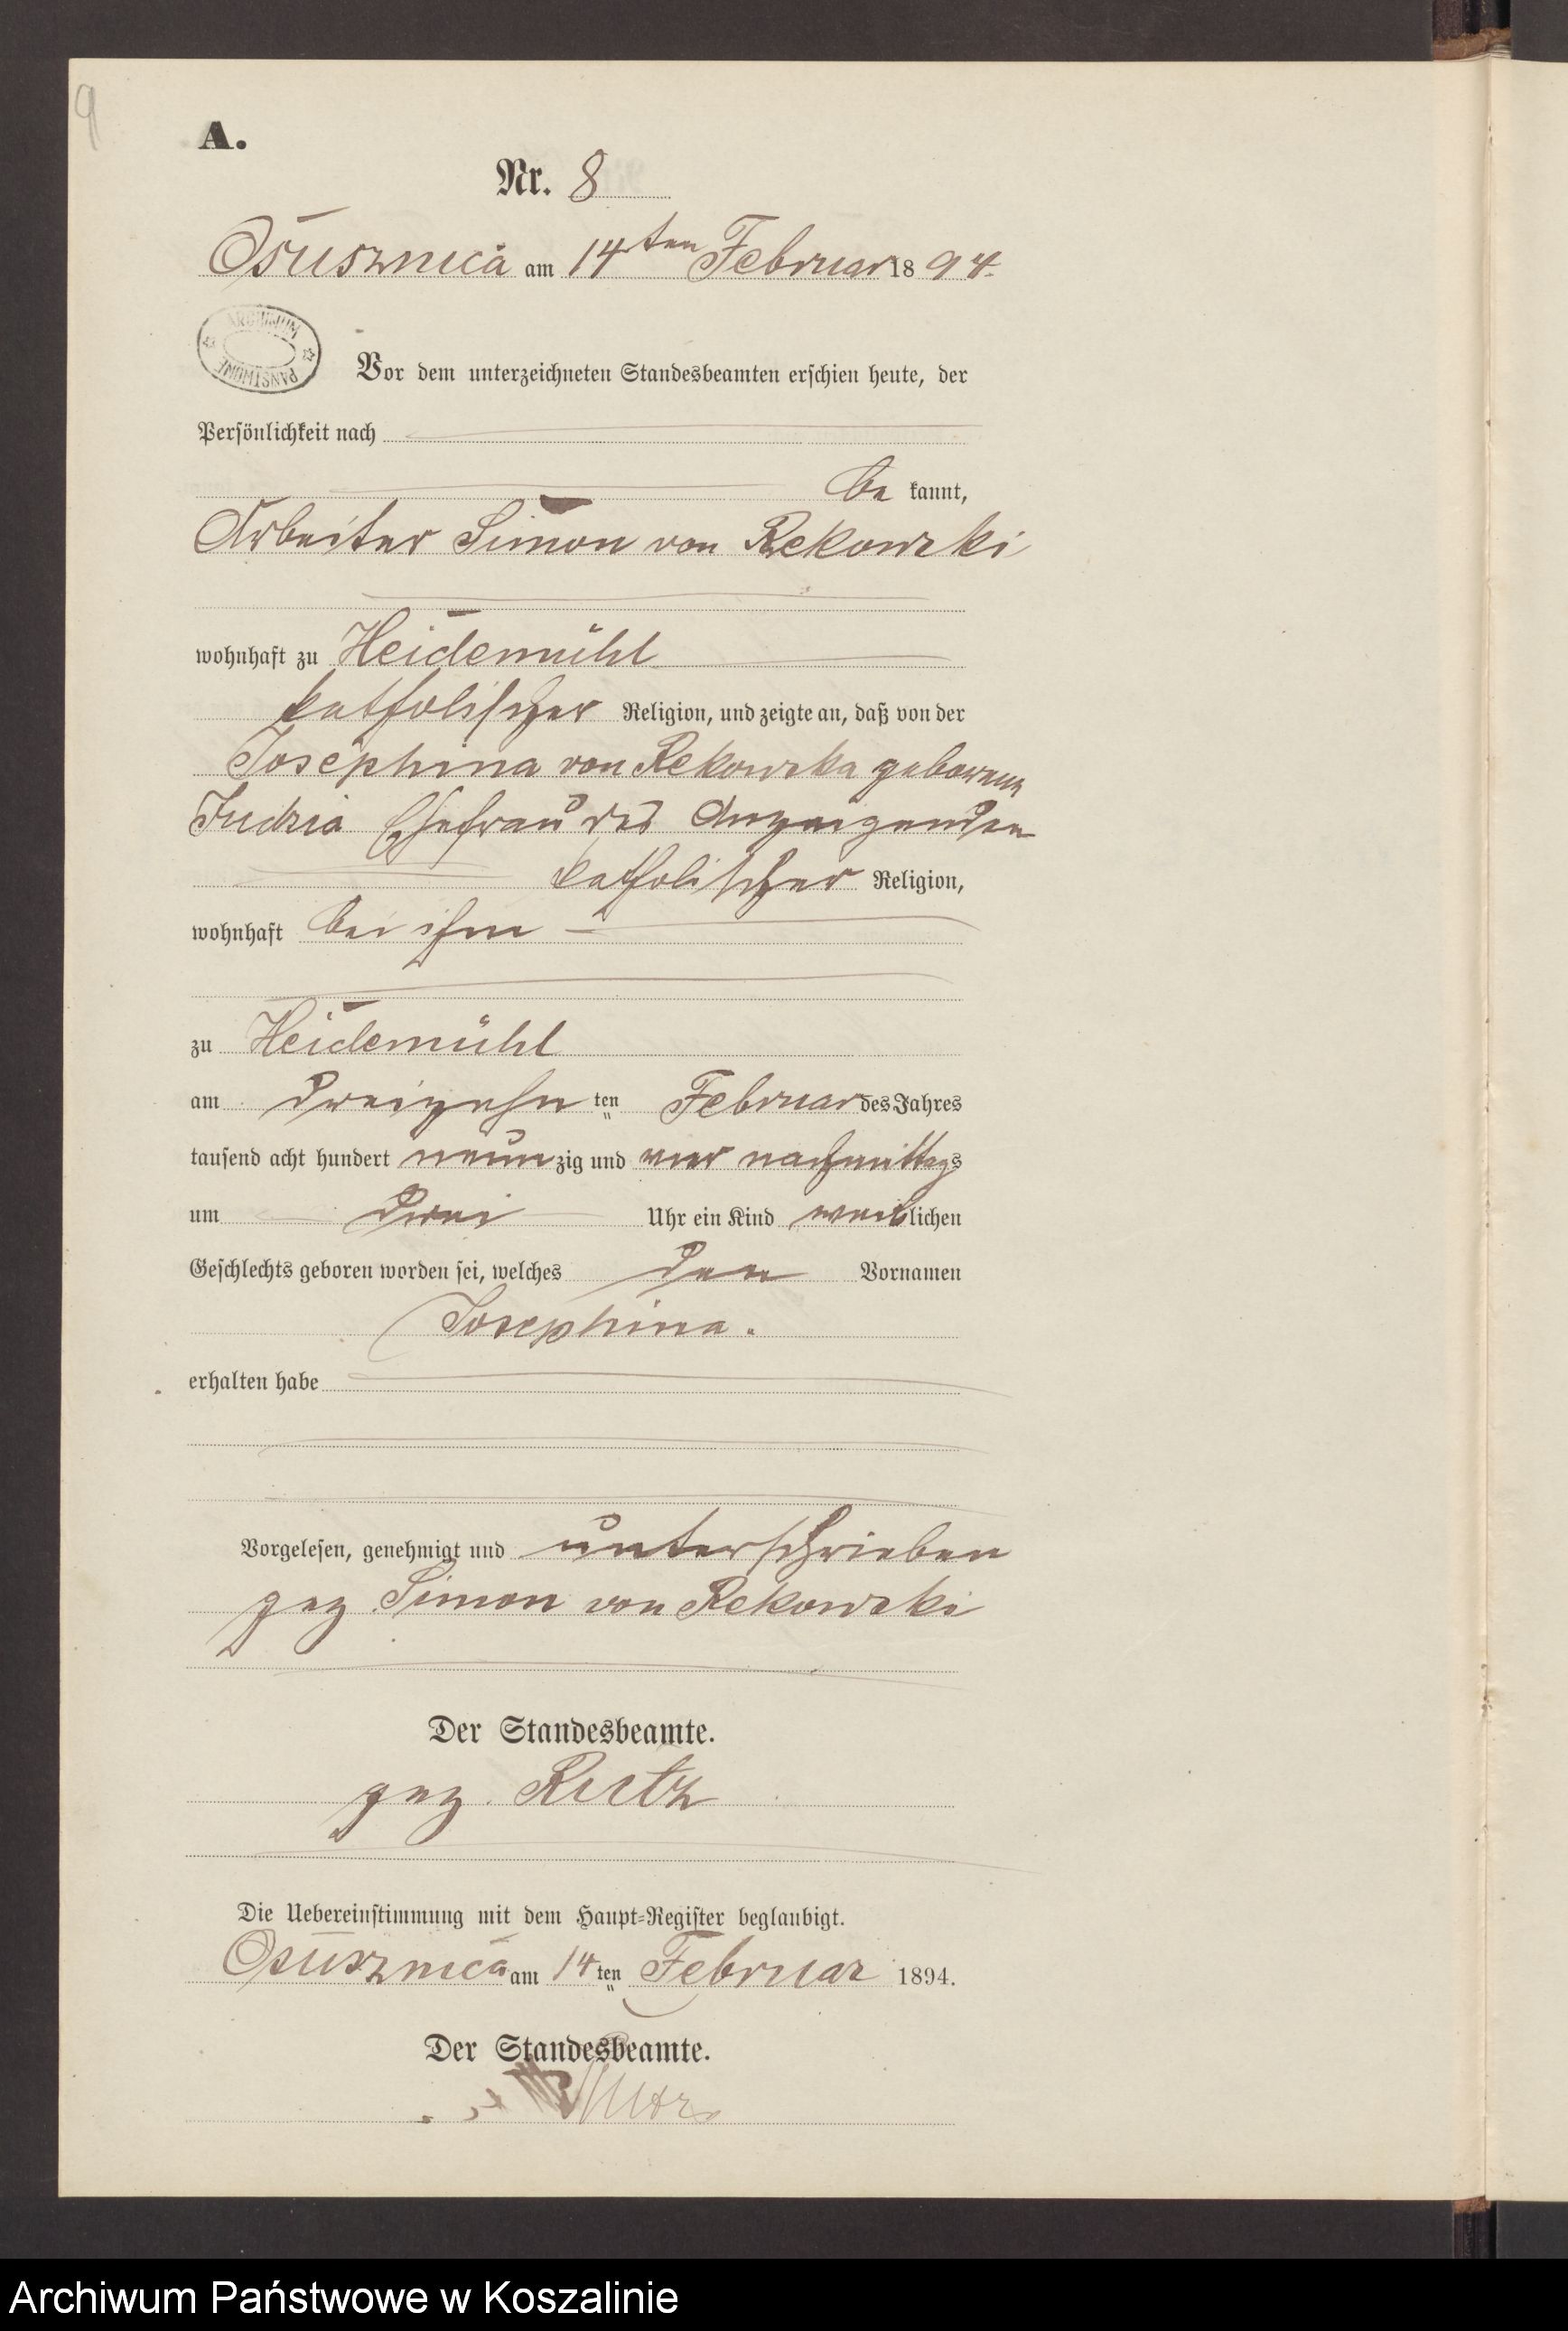 9
A.
Nr. 8
Osusznica am 14ten Februar 1894.
ARCHIWUM
PAŃSTWOWE
Vor dem unterzeichneten Standesbeamten erschien heute, der
Persönlichkeit nach
be kannt,
Arbeiter Simon von Rekowski
wohnhaft zu Heidemühl
katholischer Religion, und zeigte an, daß von der
Josephina von Rekowska geborene
Ehefrau des Anzeigenden
katholischer Religion,
wohnhaft bei ihm
zu Heidemühl
am dreizehn ten Februar des Jahres
tausend acht hundert neun zig und vier nachmittags
um drei Uhr ein Kind weiblichen
Geschlechts geboren worden sei, welches den Vornamen
Josephina.
erhalten habe
Vorgelesen, genehmigt und unterschrieben
gez Simon von Rekowski
Der Standesbeamte.
gez. Rutz
Die Uebereinstimmung mit dem Haupt-Register beglaubigt.
Osusznica am 14 ten Februar 1894.
Der Standesbeamte.
Rutz
Archiwum Państwowe w Koszalinie